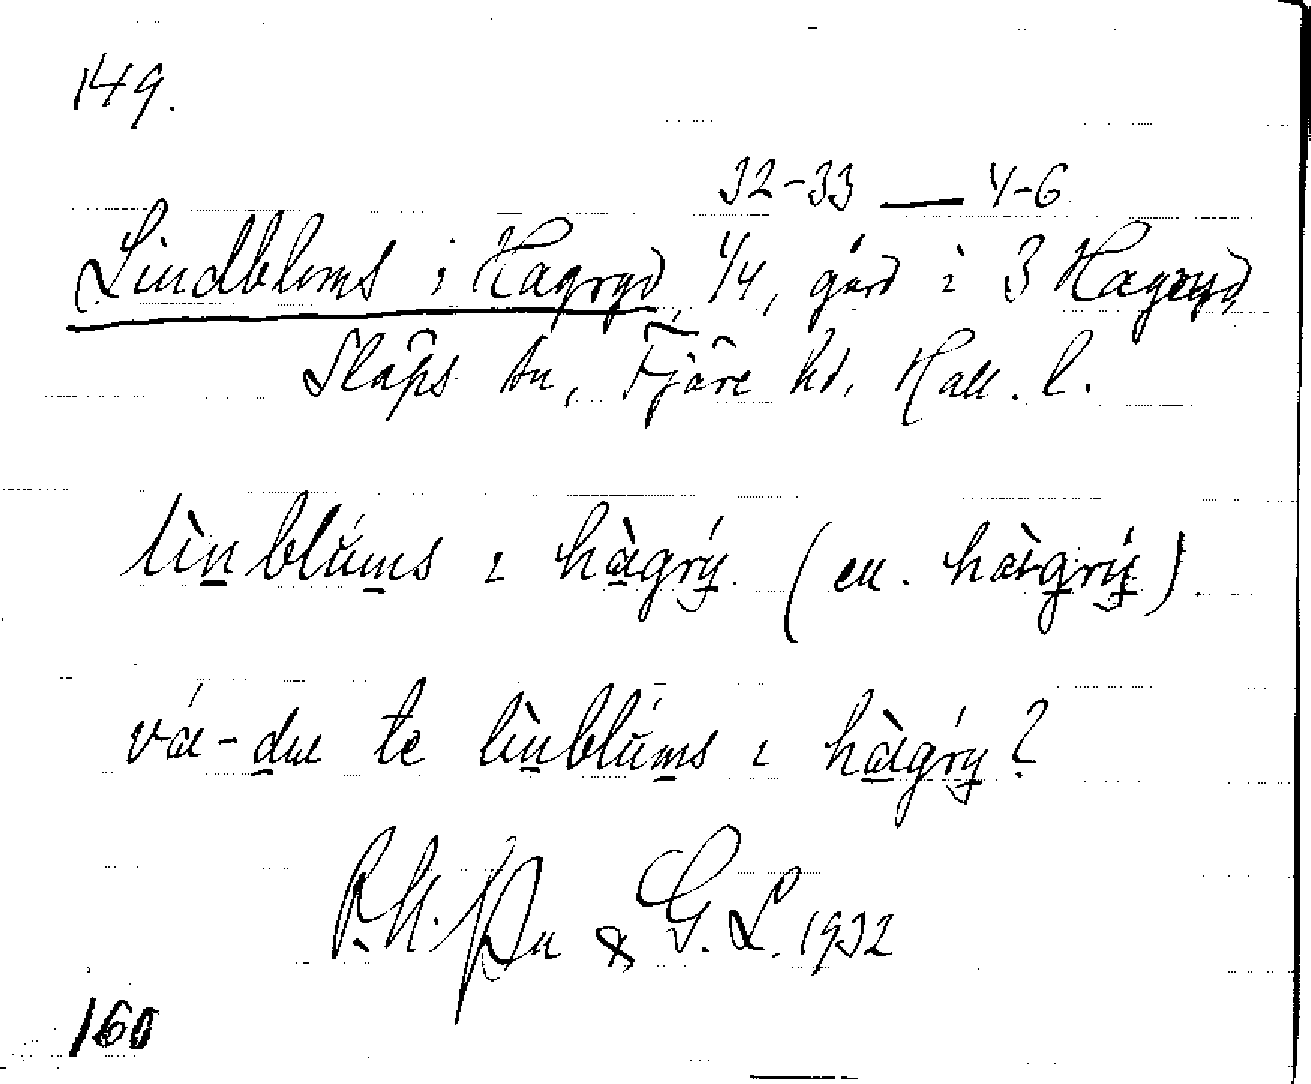 149.
32-33 — 4-6
Lindbloms i Hagryd, 1/4, gård i 3 Hagryd,
Släps sn, Fjäre hd, Hall. l.
lìnblúms ı hàgrý. (en. hàgrý).
vá-du te lìnblúms ı hàgrý?
& G. L. 1932
160